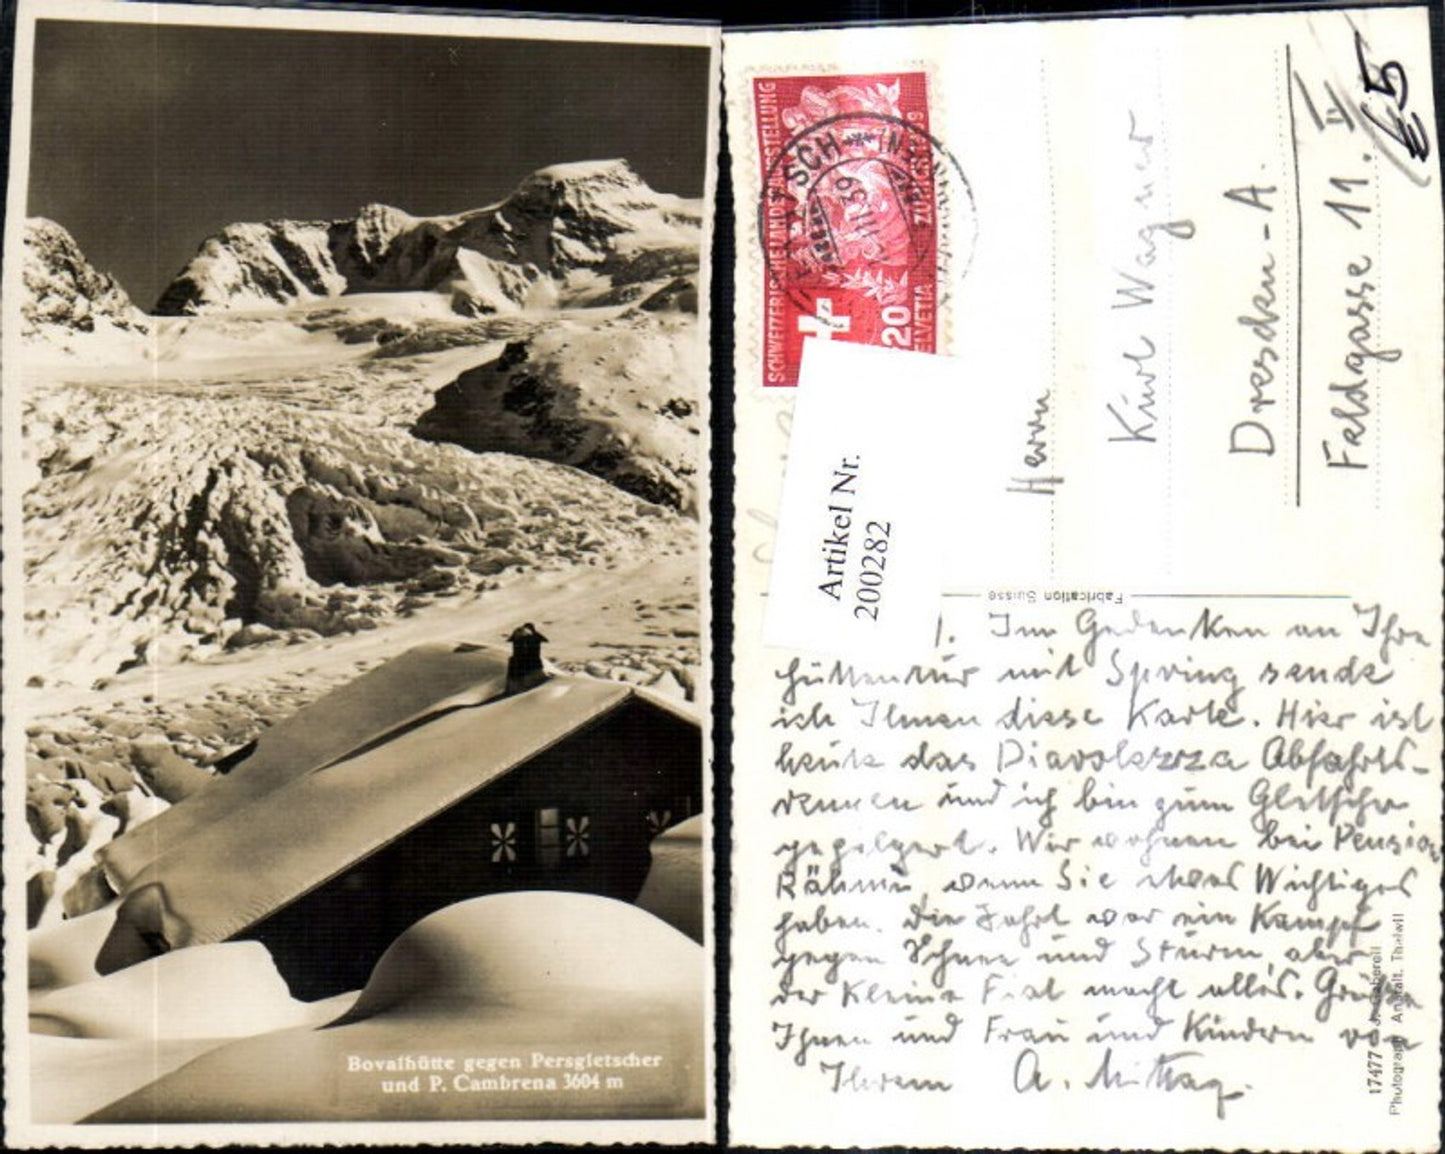 Bovalhütte gegen Persgletscher
und P. Cambrena 3604 m
SCHWEIZERISCHE LANDESAUSSTELLUNG
ZÜRICH 1939
HELVETIA
20
III.39
€5
Artikel Nr.
2000282
Herrn
Kurt Wagner
Dresden-A.
Feldgasse 11. II
Fabrication Suisse
1. Im Gedenken an Ihre
Hüttentür mit Sprung sende
ich Ihnen diese Karte. Hier ist
heute das Diavolezza Abfahrts-
rennen und ich bin zum Gletscher
. Wir wohnen bei Pension
wenn Sie etwas Wichtiges
haben. Die Fahrt war ein Kampf
gegen Schnee und Sturm, aber
der kleine Fiat macht alles. Grüsse
Ihnen und Frau und Kindern von
Ihrem A. Mittag.
17477 J. Gaberell
Photograph. Anstalt. Thalwil